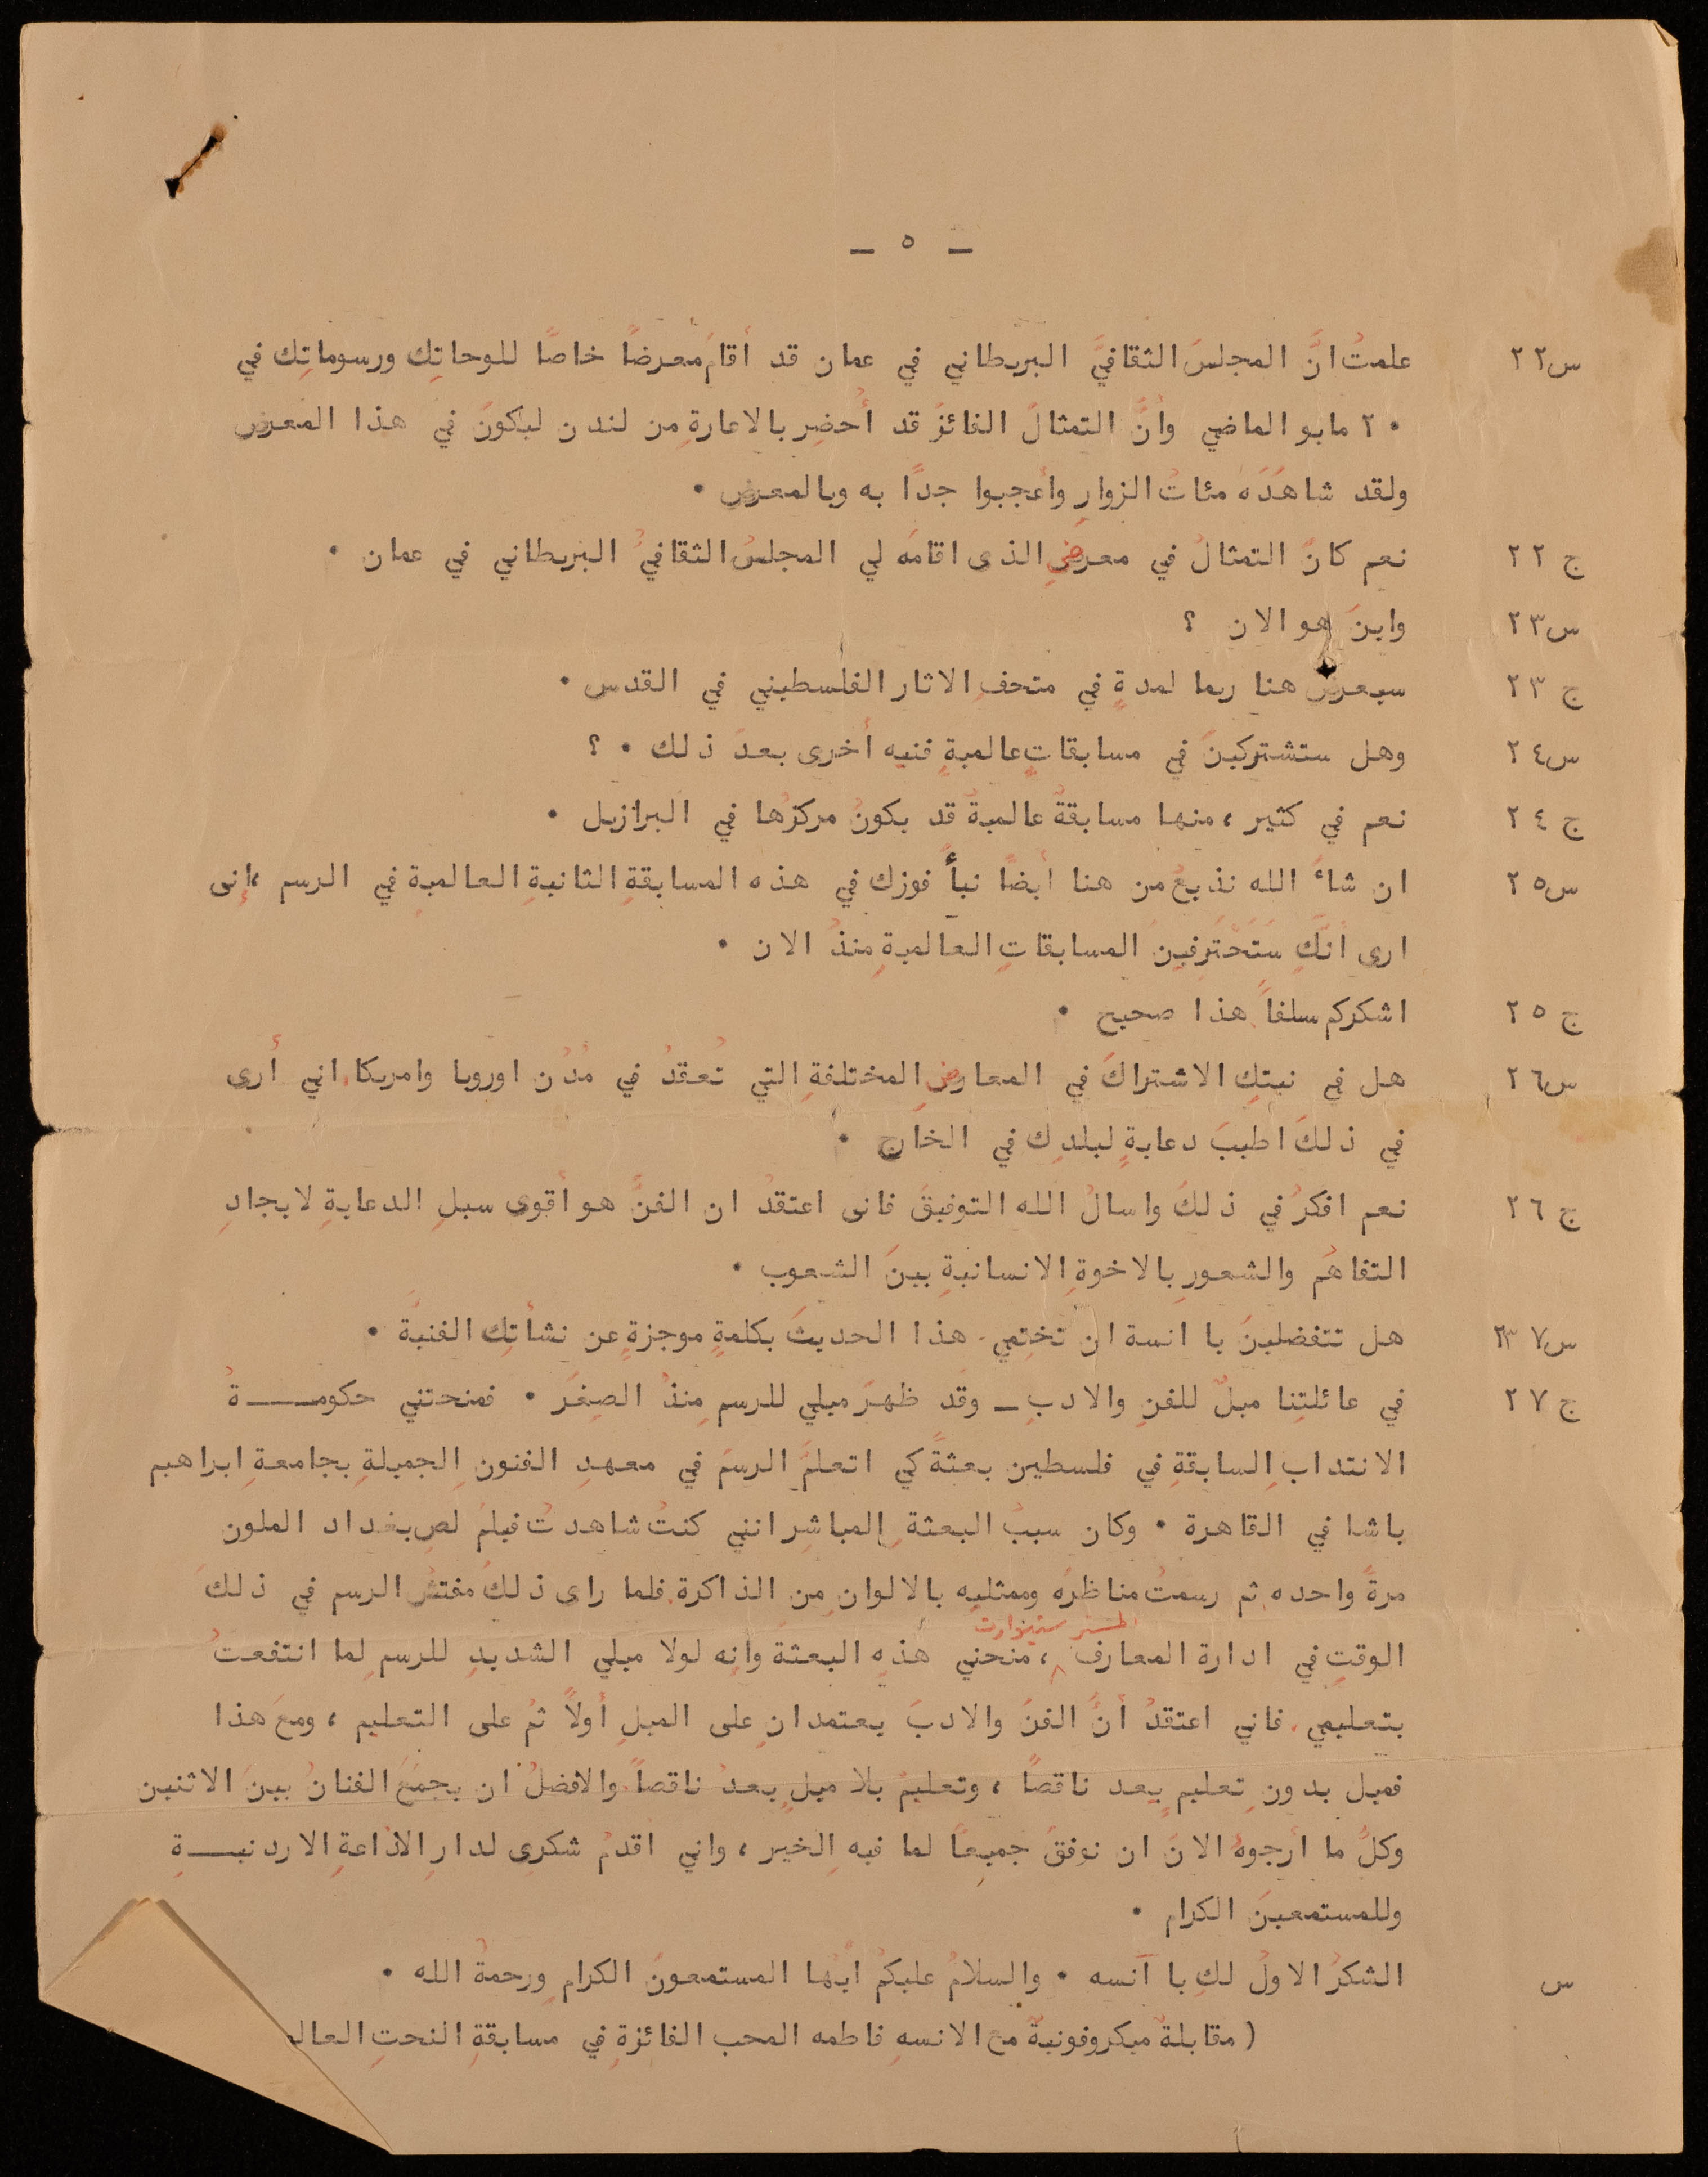 ـ ٥ ـ
س٢٢ علمتُ انَّ المجلسَ الثقافيَّ البريطاني في عمان قد أقامَ معرضاً خاصّاً للوحاتِك ورسوماتِك في
٢٠ مايو الماضي وأنَّ التمثالَ الفائزَ قد أُحضِر بالاعارةِ من لندن ليكونَ في هذا المعرض
ولقد شاهدَه مئاتُ الزوارِ وأعجبوا جداً به وبالمعرض .
ج ٢٢ نعم كانَ التمثالُ في معرضِ الذى اقامَه لي المجلسُ الثقافيُ البريطاني في عمان .
س٢٣ واينَ هو الان ؟
ج ٢٣ سيعرض هنا ربما لمدةٍ في متحفِ الاثار الفلسطيني في القدس .
س٢٤ وهل ستشتركينَ في مسابقاتٍ عالميةٍ فنيه أخرى بعدَ ذلك . ؟
ج ٢٤ نعم في كثير ، منها مسابقةٌ عالميةٌ قد يكونُ مركزُها في البرازيل .
س٢٥ ان شاءَ الله نذيعُ من هنا أيضاً نبأَ فوزك في هذه المسابقةِ الثانيةِ العالميةِ في الرسم ، إنى
ارى أنَّكِ سَتَحْتَرِفينَ المسابقاتِ العالميةِ منذُ الان .
ج ٢٥ اشكركم سلفاً هذا صحيح .
س٢٦ هل في نيتِكِ الاشتراكَ في المعارضِ المختلفةِ التي تُعقدُ في مُدُن اوروبا وامريكا اني أرى
في ذلكَ اطيبَ دعايةٍ لبلدِك في الخارج .
ج ٢٦ نعم افكرُ في ذلكَ واسالُ اللهَ التوفيقَ فانى اعتقدُ ان الفنَّ هو أقوى سبلِ الدعايةِ لايجادِ
التفاهُم والشعورِ بالاخوةِ الانسانيةِ بينَ الشعوب .
س٢٧ هل تتفضلينَ يا انسة ان تختِمي هذا الحديثَ بكلمةٍ موجزةٍ عن نشأتِك الفنيَّة .
ج ٢٧ في عائلتِنا ميلٌ للفنِ والادبِ ـ وقد ظهرَ ميلي للرسمِ منذُ الصِغَر . فمنحتني حكومــــةُ
الانتدابِ السابقةِ في فلسطين بعثةً كي اتعلمَّ الرسمَ في معهدِ الفنونِ الجميلةِ بجامعةِ ابراهيم
باشا في القاهرة . وكان سببُ البعثةِ المباشِر انني كنتُ شاهدتُ فيلمَ لصِ بغداد الملون
مرةً واحده ثم رسمتُ مناظرَه وممثليه بالالوانِ من الذاكرة فلما راى ذلكَ مفتشُ الرسم في ذلكَ
الوقتِ في ادارة المعارف المستر ستيوارت ، منحني هذهِ البعثةَ وانه لولا ميلي الشديدِ للرسمِ لما انتفعتُ
بتعليمي فاني اعتقدُ أنَّ الفنَ والادبَ يعتمدانِ على الميلِ أولاً ثم على التعليم ، ومعَ هذا
فميل بدونِ تعليمٍ يعد ناقصاً ، وتعليمٌ بلا ميلٍ يعدُ ناقصاً والافضلُ ان يجمَع الفنانُ بينَ الاثنين
وكلُّ ما أرجوهُ الانَ ان نوفقَ جميعاً لما فيهِ الخير ، واني اقدمُ شكري لدارِ الاذاعةِ الاردنيـــةِ
وللمستمعينَ الكرام .
س الشكرُ الاولُ لكِ يا آنسه . والسلامُ عليكمْ ايُّها المستمعونَ الكرامِ ورحمةُ الله .
( مقابلةٌ ميكروفونيةٌ مع الانسهِ فاطمه المحب الفائزةِ في مسابقةِ النحتِ